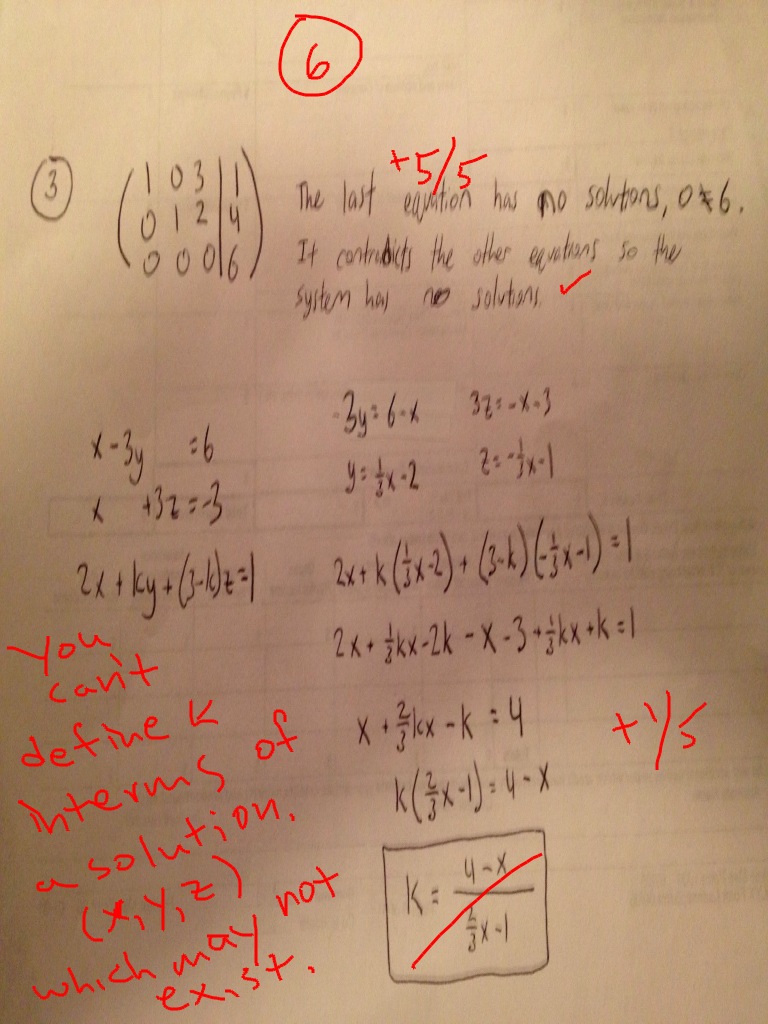 6
3
+5/5
1 0 3 | 1
0 1 2 | 4
0 0 0 | 6
The last equation has no solutions, 0≠6.
It contradicts the other equations so the
system has no solutions. ✓
x-3y =6
x +3z=-3
2x+ky+(3-k)z=1
-3y=6-x
y=1/3x-2
3z=-x-3
z=-1/3x-1
2x+k(1/3x-2)+(3-k)(-1/3x-1)=1
2x+1/3kx-2k-x-3+1/3kx+k=1
x+2/3kx-k=4
k(2/3x-1)=4-x
k=(4-x)/(2/3x-1)
+1/5
You
can't
define k
interms of
a solution.
(x,y,z)
which may not
exist.